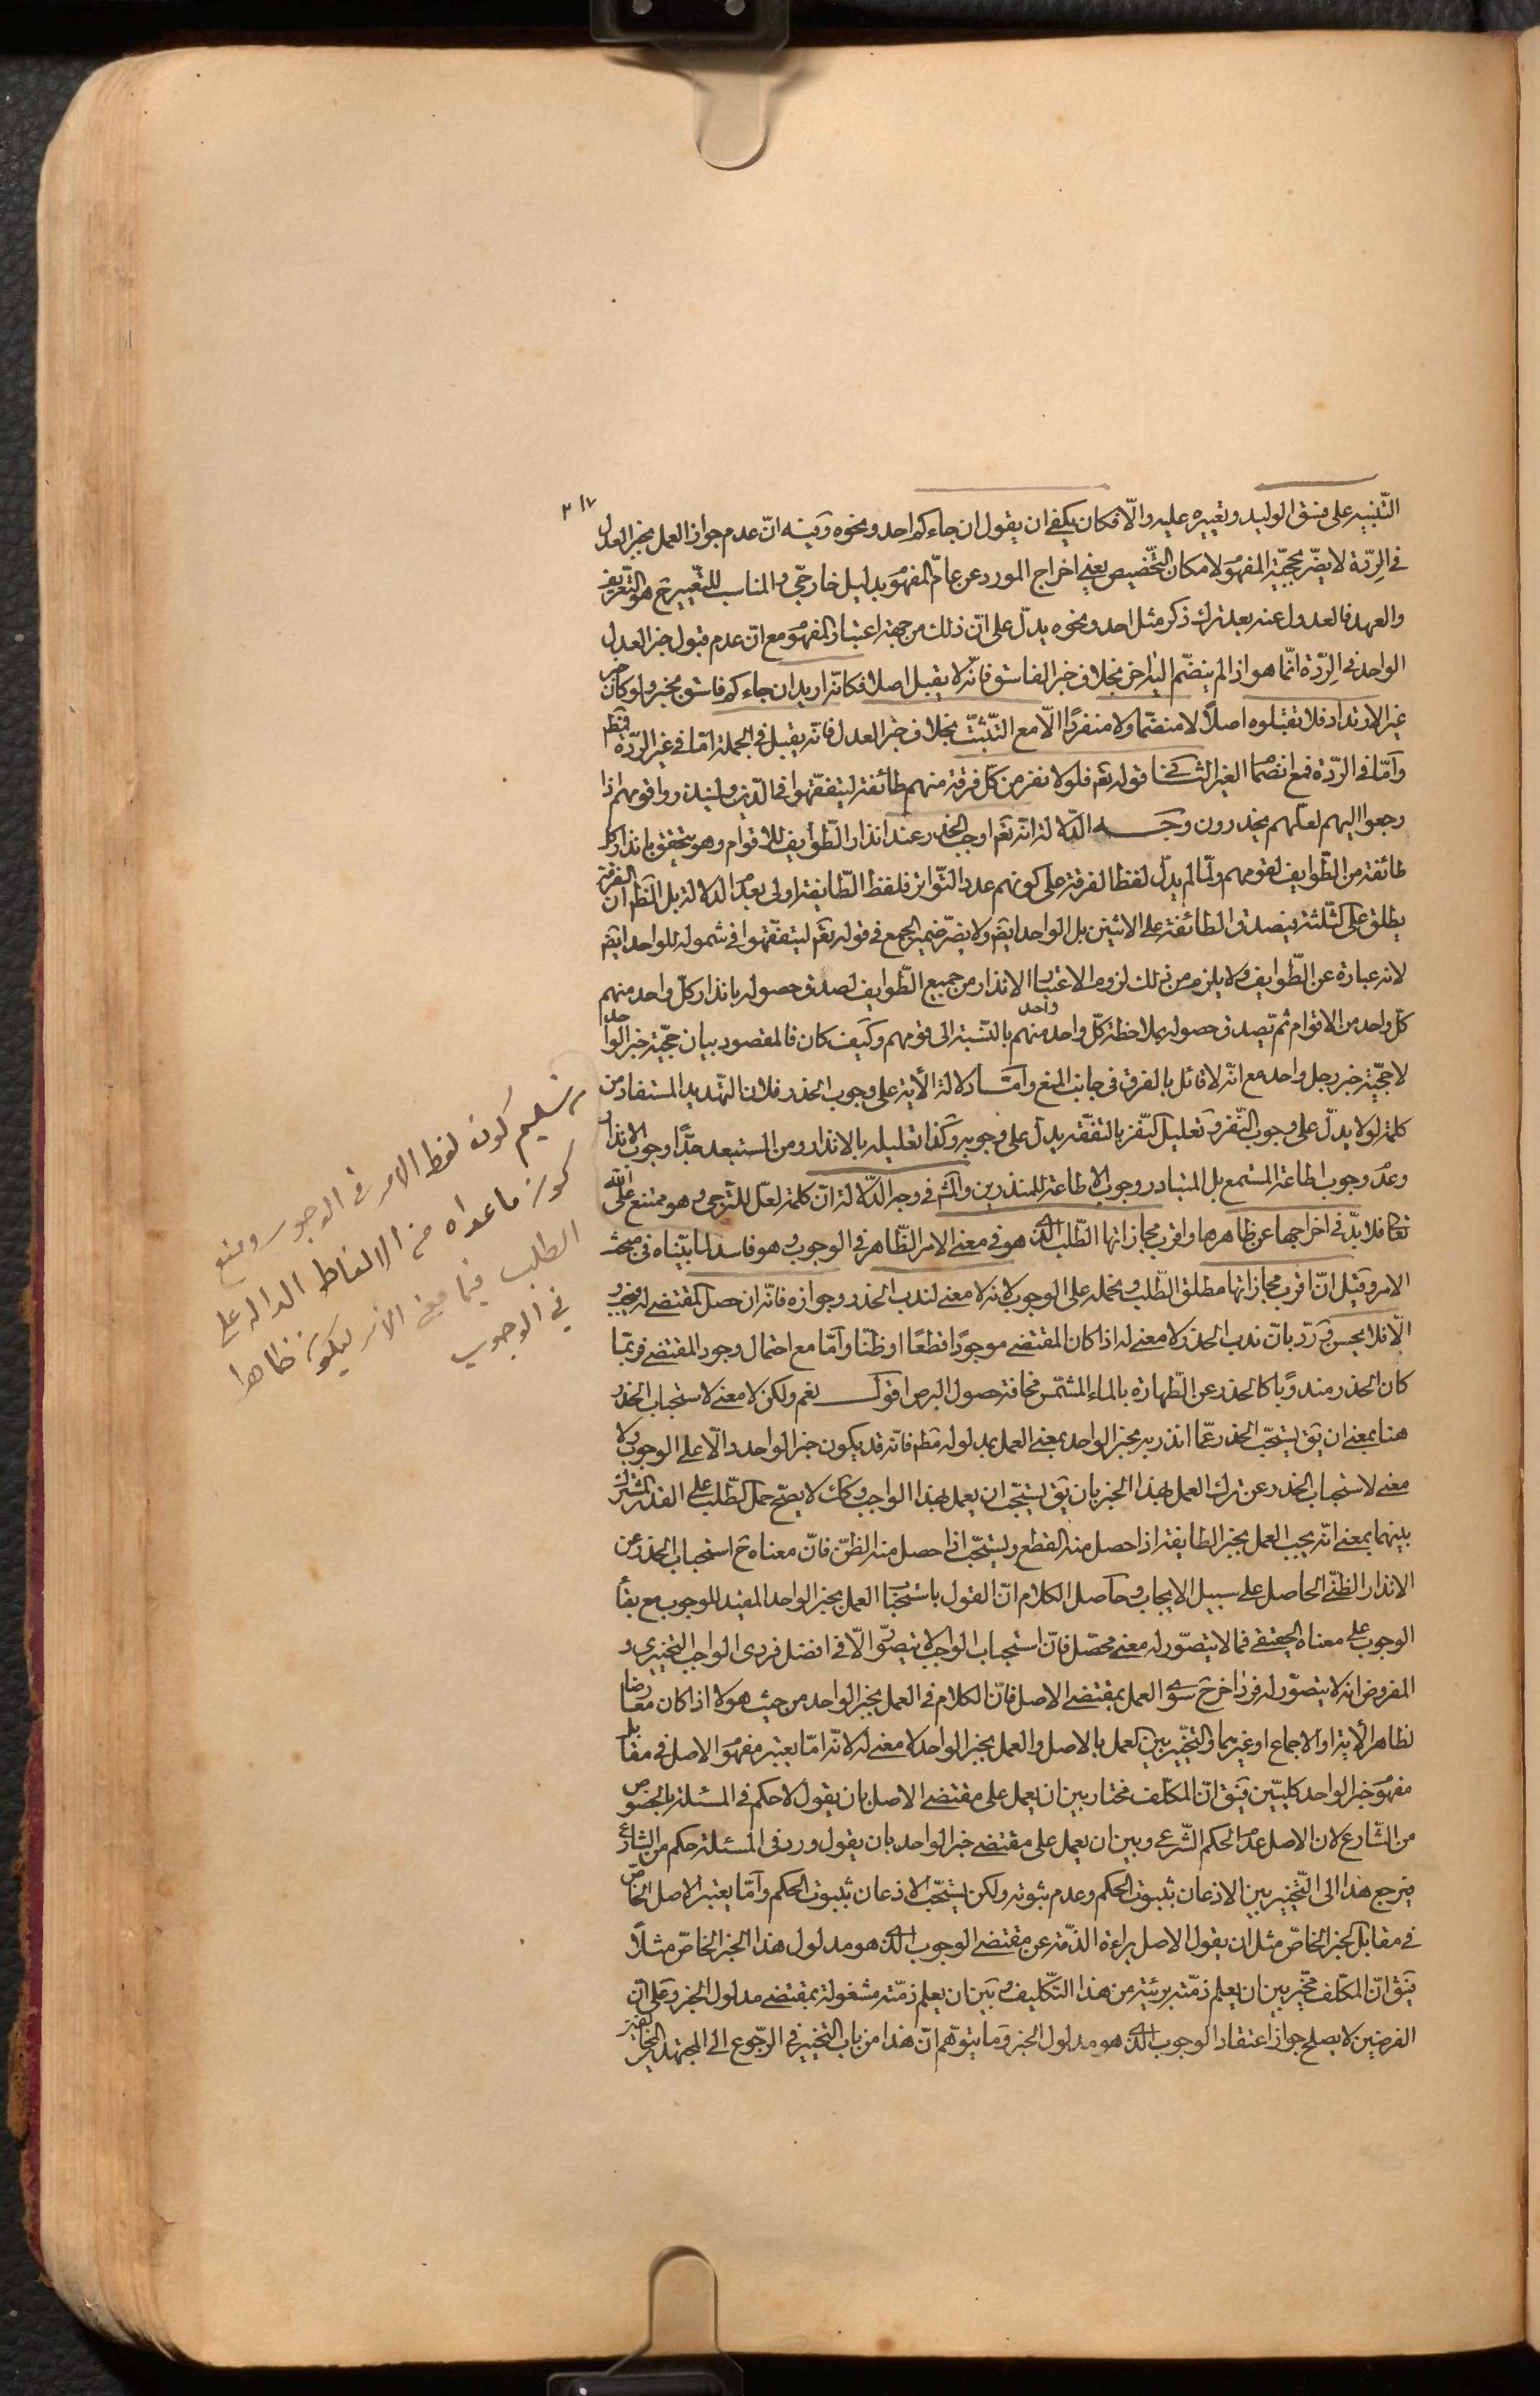 ٢١٧
التّنبيه على فسق الوليد وتعييره عليه والّا فكان يكفى ان يقول ان جاءكم احد ونحوه وفيه انّ عدم جواز العمل بخبر العدل
فى الرّدّة لا يضرّ بحجّيّة المفهوم لامكان التّخصيص يعنى اخراج المورد عن عامّ المفهوم بدليل خارجىّ والمناسب للتّعيير ح هو التّعريف
والعهد فالعدول عنه بعد ترك ذكر مثل احد ونحوه يدلّ على انّ ذلك من جهة اعتبار المفهوم مع انّ عدم قبول خبر العدل
الواحد فى الرّدّة انّما هو اذا لم ينضمّ اليه اخر بخلاف خبر الفاسق فانّه لا يقبل اصلا فكانّه اريد ان جاءكم فاسق بخبر ولو كان خبر
عن الارتداد فلا تقبلوه اصلًا لا منضمّا ولا منفردًا الّا مع التّثبّت بخلاف خبر العدل فانّه يقبل فى الجملة امّا فى غير الرّدّة فمطم
وامّا فى الرّدّة فمع انضمام الغير الثّانى قوله تعم فلولا نفر من كلّ فرقة منهم طائفة ليتفقّهوا فى الدّين ولينذروا قومهم اذا
رجعوا اليهم لعلّهم يحذرون وجه الدّلالة انّه تعم اوجب الحذر عند انذار الطّوايف للاقوام وهو يتحقّق بانذار كلّ
طائفة من الطّوايف لقومهم ولمّا لم يدلّ لفظ الفرقة على كونهم عدد التّواتر فلفظ الطّايفة اولى بعدم الدلالة بل الظّم انّ الفرقة
يطلق على الثّلثة فيصدق الطائفة على الاثنين بل الواحد ايضم ولا يضرّ ضمير الجمع فى قوله تعم ليتفقّهوا فى شموله للواحد ايضم
لانه عبارة عن الطّوايف ولا يلزم من ذلك لزوم اعتبار الانذار من جميع الطّوايف لصدق حصوله بانذار كلّ واحد منهم
كلّ واحد من الاقوام ثم تصدق حصوله بملاحظة كلّ واحد واحد منهم بالنّسبة الى قومهم وكيف كان فالمقصود بيان حجّيّة خبر الواحد
لا حجّيّة خبر رجل واحد مع انّه لا قائل بالفرق فى جانب المنع وامّا دلالة الأية على وجوب الحذر فلان التّهديد المستفاد من
كلمة لولا يدلّ على وجوب النّفر وتعليل النّفر بالتفقّه يدلّ على وجوبه وكذا تعليله بالانذار ومن المستبعد جدًّا وجوب الانذار
وعدم وجوب اطاعة المستمع بل المتبادر وجوب الاطاعة للمنذرين والمشم فى وجه الدّلالة انّ كلمة لعلّ للتّرجى وهو ممتنع على الله
تعالى فلا بدّ فى اخراجها عن ظاهرها واقرب مجازاتها الطّلب الذى هو فى معنى الامر الظّاهر فى الوجوب وهو فاسد لما بيّنّاه فى مبحث
الامر وقيل انّ اقرب مجازاتها مطلق الطّلب ونحمله على الوجوب لانه لا معنى لندب الحذر وجوازه فانّه ان حصل المقتضى له وجب و
الّا فلا يحسن وردّ بانّ ندب الحذر لا معنى له اذا كان المقتضى موجودًا قطعًا او ظنّا وامّا مع احتمال وجود المقتضى فربّما
كان الحذر مندوبًا كالحذر عن الطّهارة بالماء المشمّس مخافة حصول البرص اقول نعم ولكن لا معنى لاستحباب الحذر
هنا بمعنى ان يق يستحبّ الحذر عمّا انذر به بخبر الواحد بمعنى العمل بمدلوله مطم فانّه قد يكون خبر الواحد دالّا على الوجوب ولا
معنى لاستحباب الحذر عن ترك العمل بهذا الخبر بان يق يستحبّ ان يعمل بهذا الواجب وكك لا يصحّ حمل الطّلب على القدر المشترك
بينهما بمعنى انّه يجب العمل بخبر الطايفة اذا حصل منه القطع ويستحبّ اذا حصل منه الظنّ فانّ معناه ح استحباب الحذر عن
الانذار الظنّى الحاصل على سبيل الايجاب وحاصل الكلام انّ القول باستحباب العمل بخبر الواحد المفيد للوجوب مع بقاء
الوجوب على معناه الحقيقى فما لا يتصوّر له معنى محصّل فانّ استحباب الواجب لا يتصوّر الّا فى افضل فردى الواجب التخييرى و
المفروض انه لا يتصوّر له فرد اخر ح سوى العمل بمقتضى الاصل فانّ الكلام فى العمل بخبر الواحد من حيث هو لا اذا كان معارضا
لظاهر الأية او الاجماع او غيرهما والتخيير بين العمل بالاصل والعمل بخبر الواحد لا معنى له لانّه امّا يعتبر مفهوم الاصل فى مقابل
مفهوم خبر الواحد كليّين فيق انّ المكلّف مختار بين ان يعمل على مقتضى الاصل بان يقول لا حكم فى المسئلة بالخصوص
من الشّارع لان الاصل عدم الحكم الشّرعى وبين ان يعمل على مقتضى خبر الواحد بان يقول ورد فى المسئلة حكم من الشارع
فيرجع هذا الى التّخيير بين الاذعان بثبوت الحكم وعدم ثبوته ولكن يستحبّ الاذعان بثبوت الحكم وامّا يعتبر الاصل الخاصّ
فى مقابل الخبر الخاصّ مثل ان يقول الاصل براءة الذّمّة عن مقتضى الوجوب الذى هو مدلول هذا الخبر الخاصّ مثلًا
فيق انّ المكلّف مخيّر بين ان يعلم ذمّته بريئة من هذا التّكليف وبين ان يعلم ذمّته مشغولة بمقتضى مدلول الخبر وعلى اىّ
الفرضين لا يصلح جواز اعتقاد الوجوب الذى هو مدلول الخبر وما يتوهّم انّ هذا من باب التخيير فى الرّجوع الى المجتهد
تسليم كون لفظ الامر فى الوجوب ومنع
كون ما عداه من الالفاظ الداله على
الطلب فيما معنى الامر ليكون ظاهرا
فى الوجوب